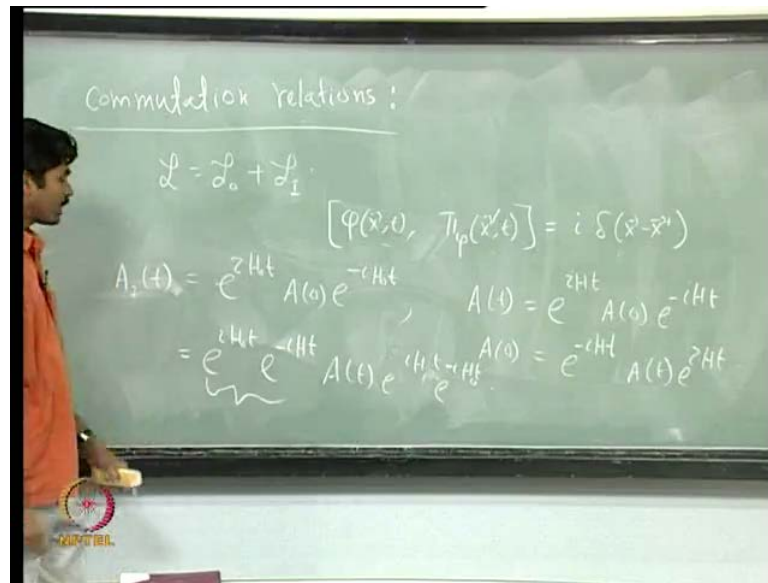 Commutation relations:
ℒ = ℒ₀ + ℒ_I.
[φ(x⃗,t), Π_φ(x⃗′,t)] = i δ(x⃗-x⃗′)
A_I(t) = e^{iH₀t} A(0) e^{-iH₀t}, A(t) = e^{iHt} A(0) e^{-iHt}
= e^{iH₀t} e^{-iHt} A(t) e^{iHt} e^{-iH₀t}. A(0) = e^{-iHt} A(t) e^{iHt}
NPTEL